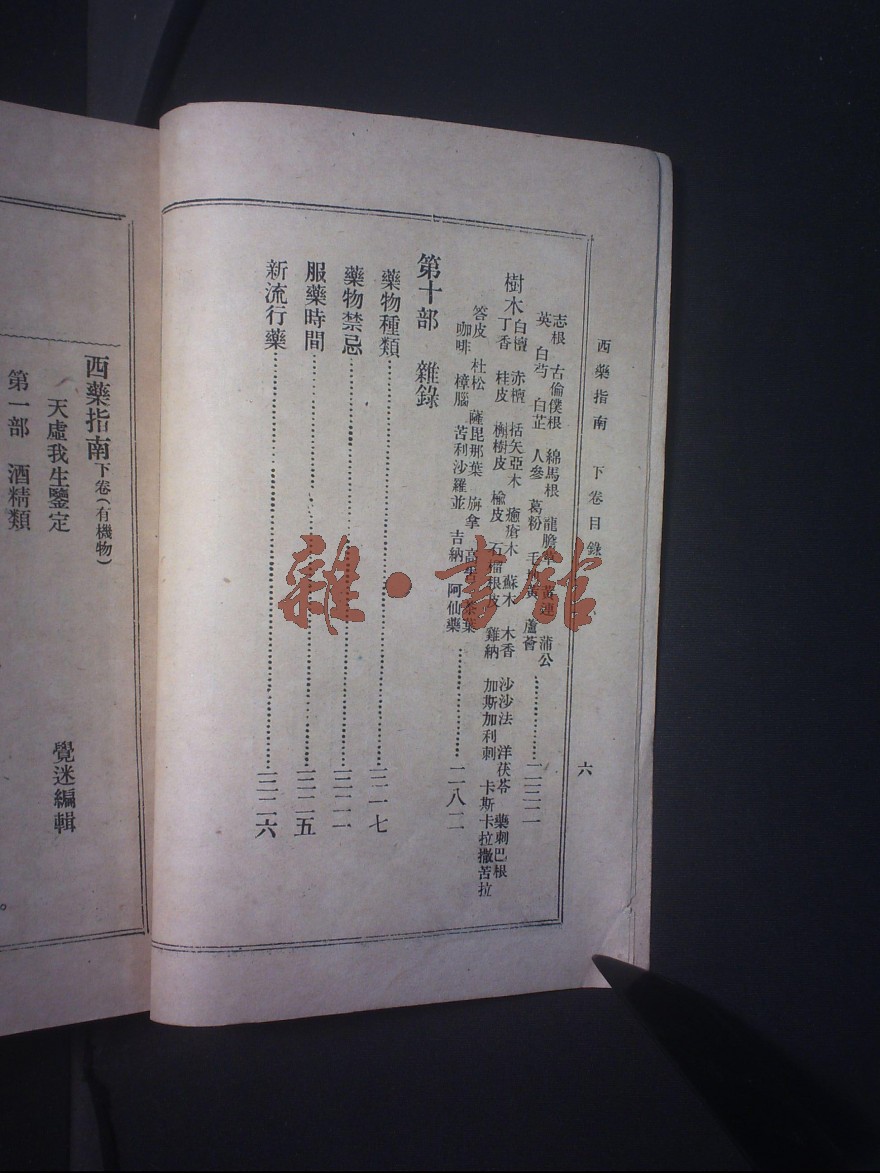 西藥指南 下卷目錄 六
志根 古倫僕根 綿馬根 龍膽草 黃連 蒲公
英 白芍 白芷 人參 葛粉 毛地黃 蘆薈
樹木
白檀 赤檀 括矢亞木 癒瘡木 蘇木 木香 沙沙法 洋茯苓 藥刺巴根
丁香 桂皮 槲樹皮 楡皮 石榴根皮 雞納 加斯加利刺 卡斯卡拉撒苦拉
答皮 杜松 薩毘那葉 旃拿 茶葉
咖啡 樟腦 苦利沙羅並 吉納 阿仙藥 二八二
第十部 雜錄
藥物種類 三一七
藥物禁忌
服藥時間 三二五
新流行藥 三二六
西藥指南下卷(有機物)
天虛我生鑒定 覺迷編輯
第一部 酒精類
雜·書館